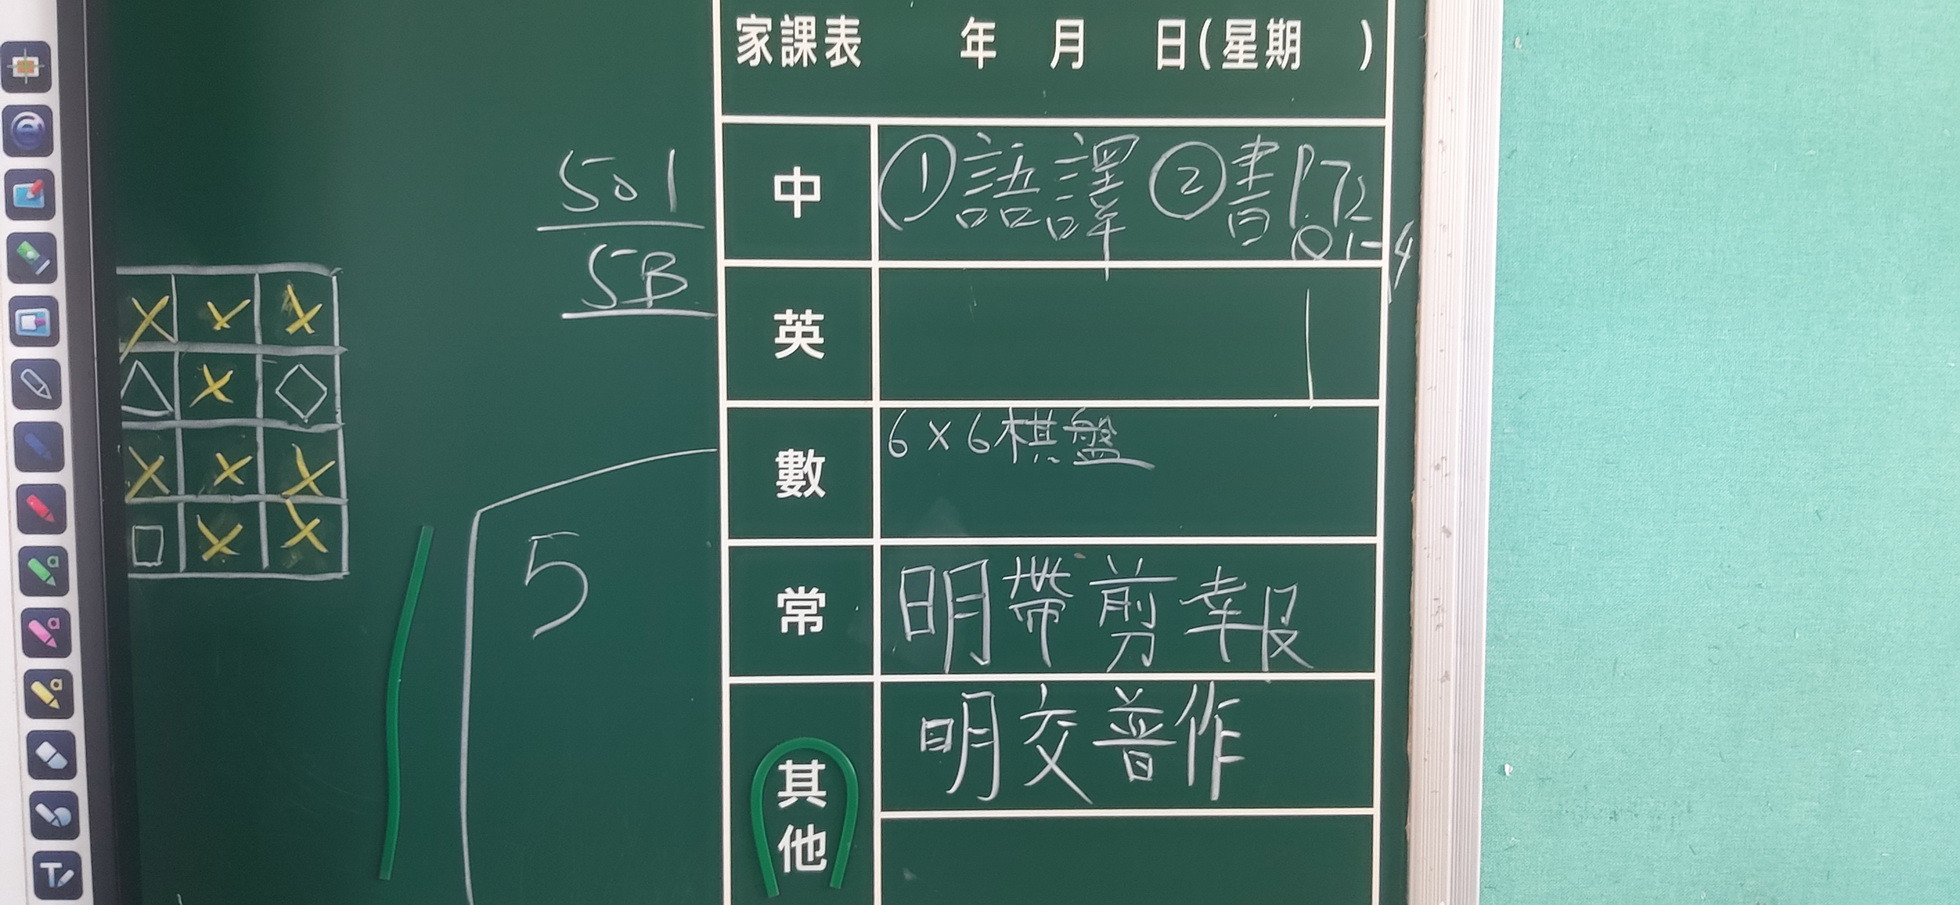 家課表 年 月 日(星期 )
501
5B
中 ①語譯 ②書P.72
Q1-4
英
數 6×6棋盤
5
常 明帶剪報
其他 明交普作